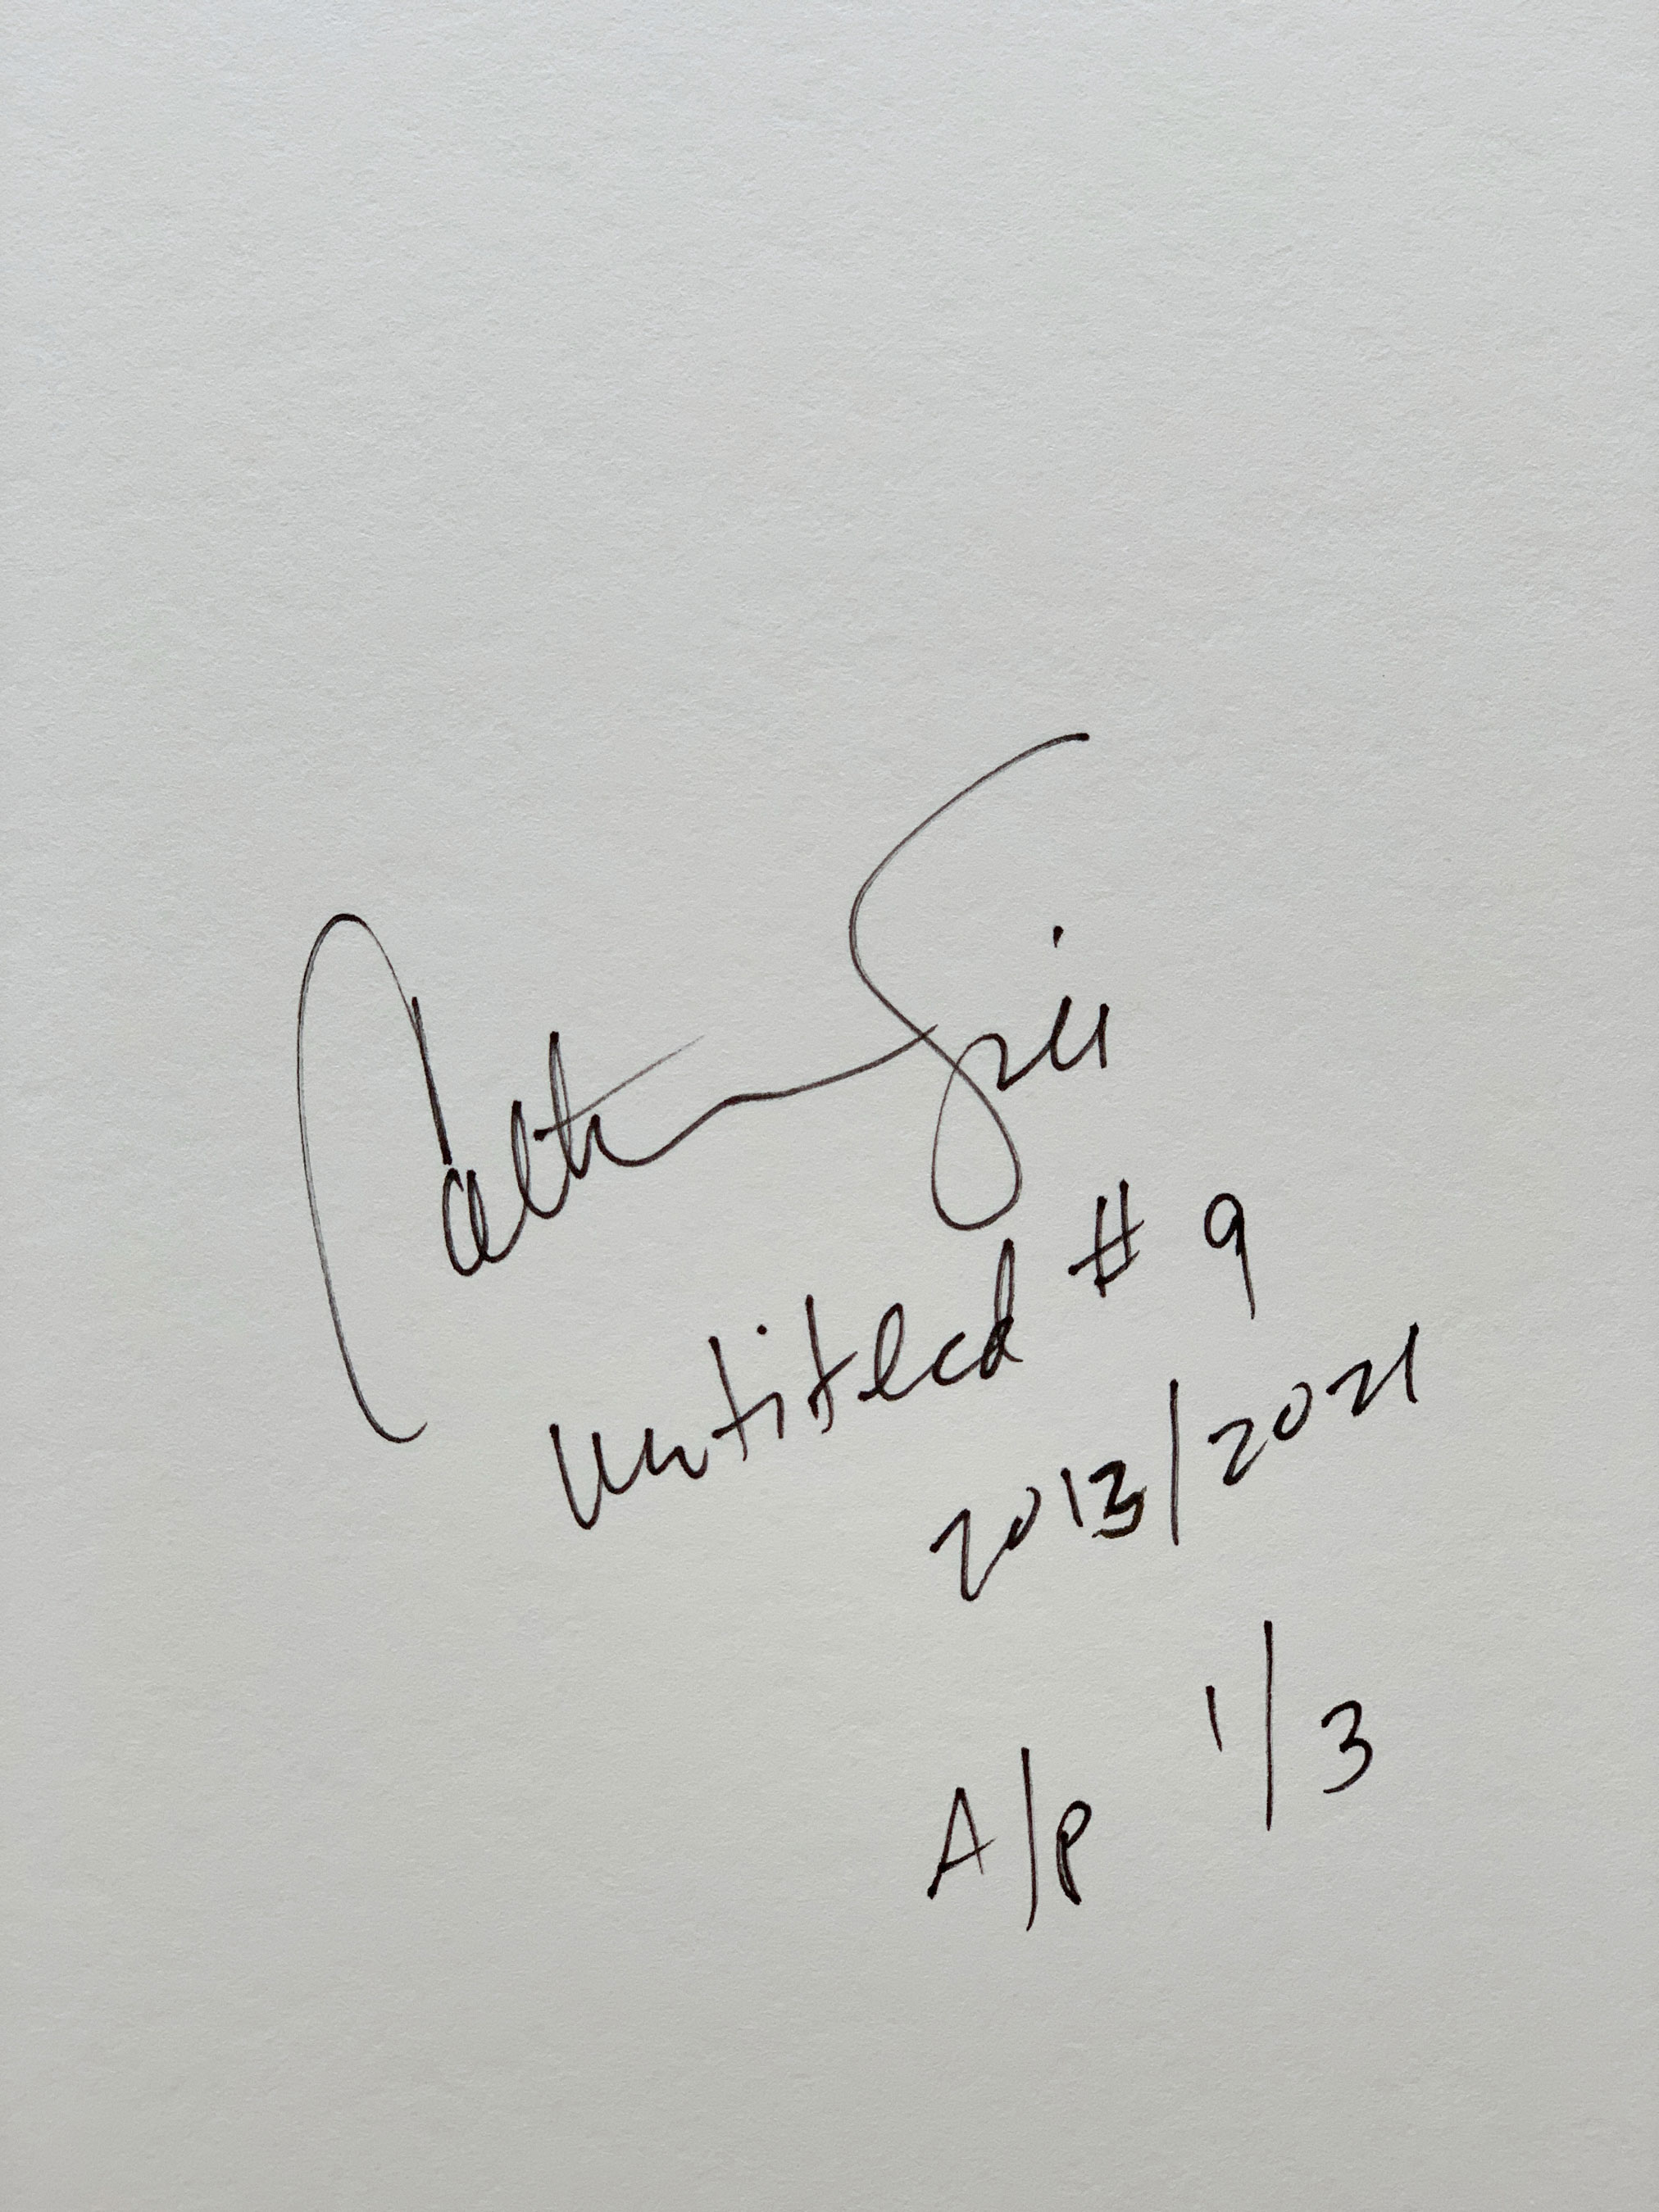 untitled # 9
2013/2021
A/P 1/3